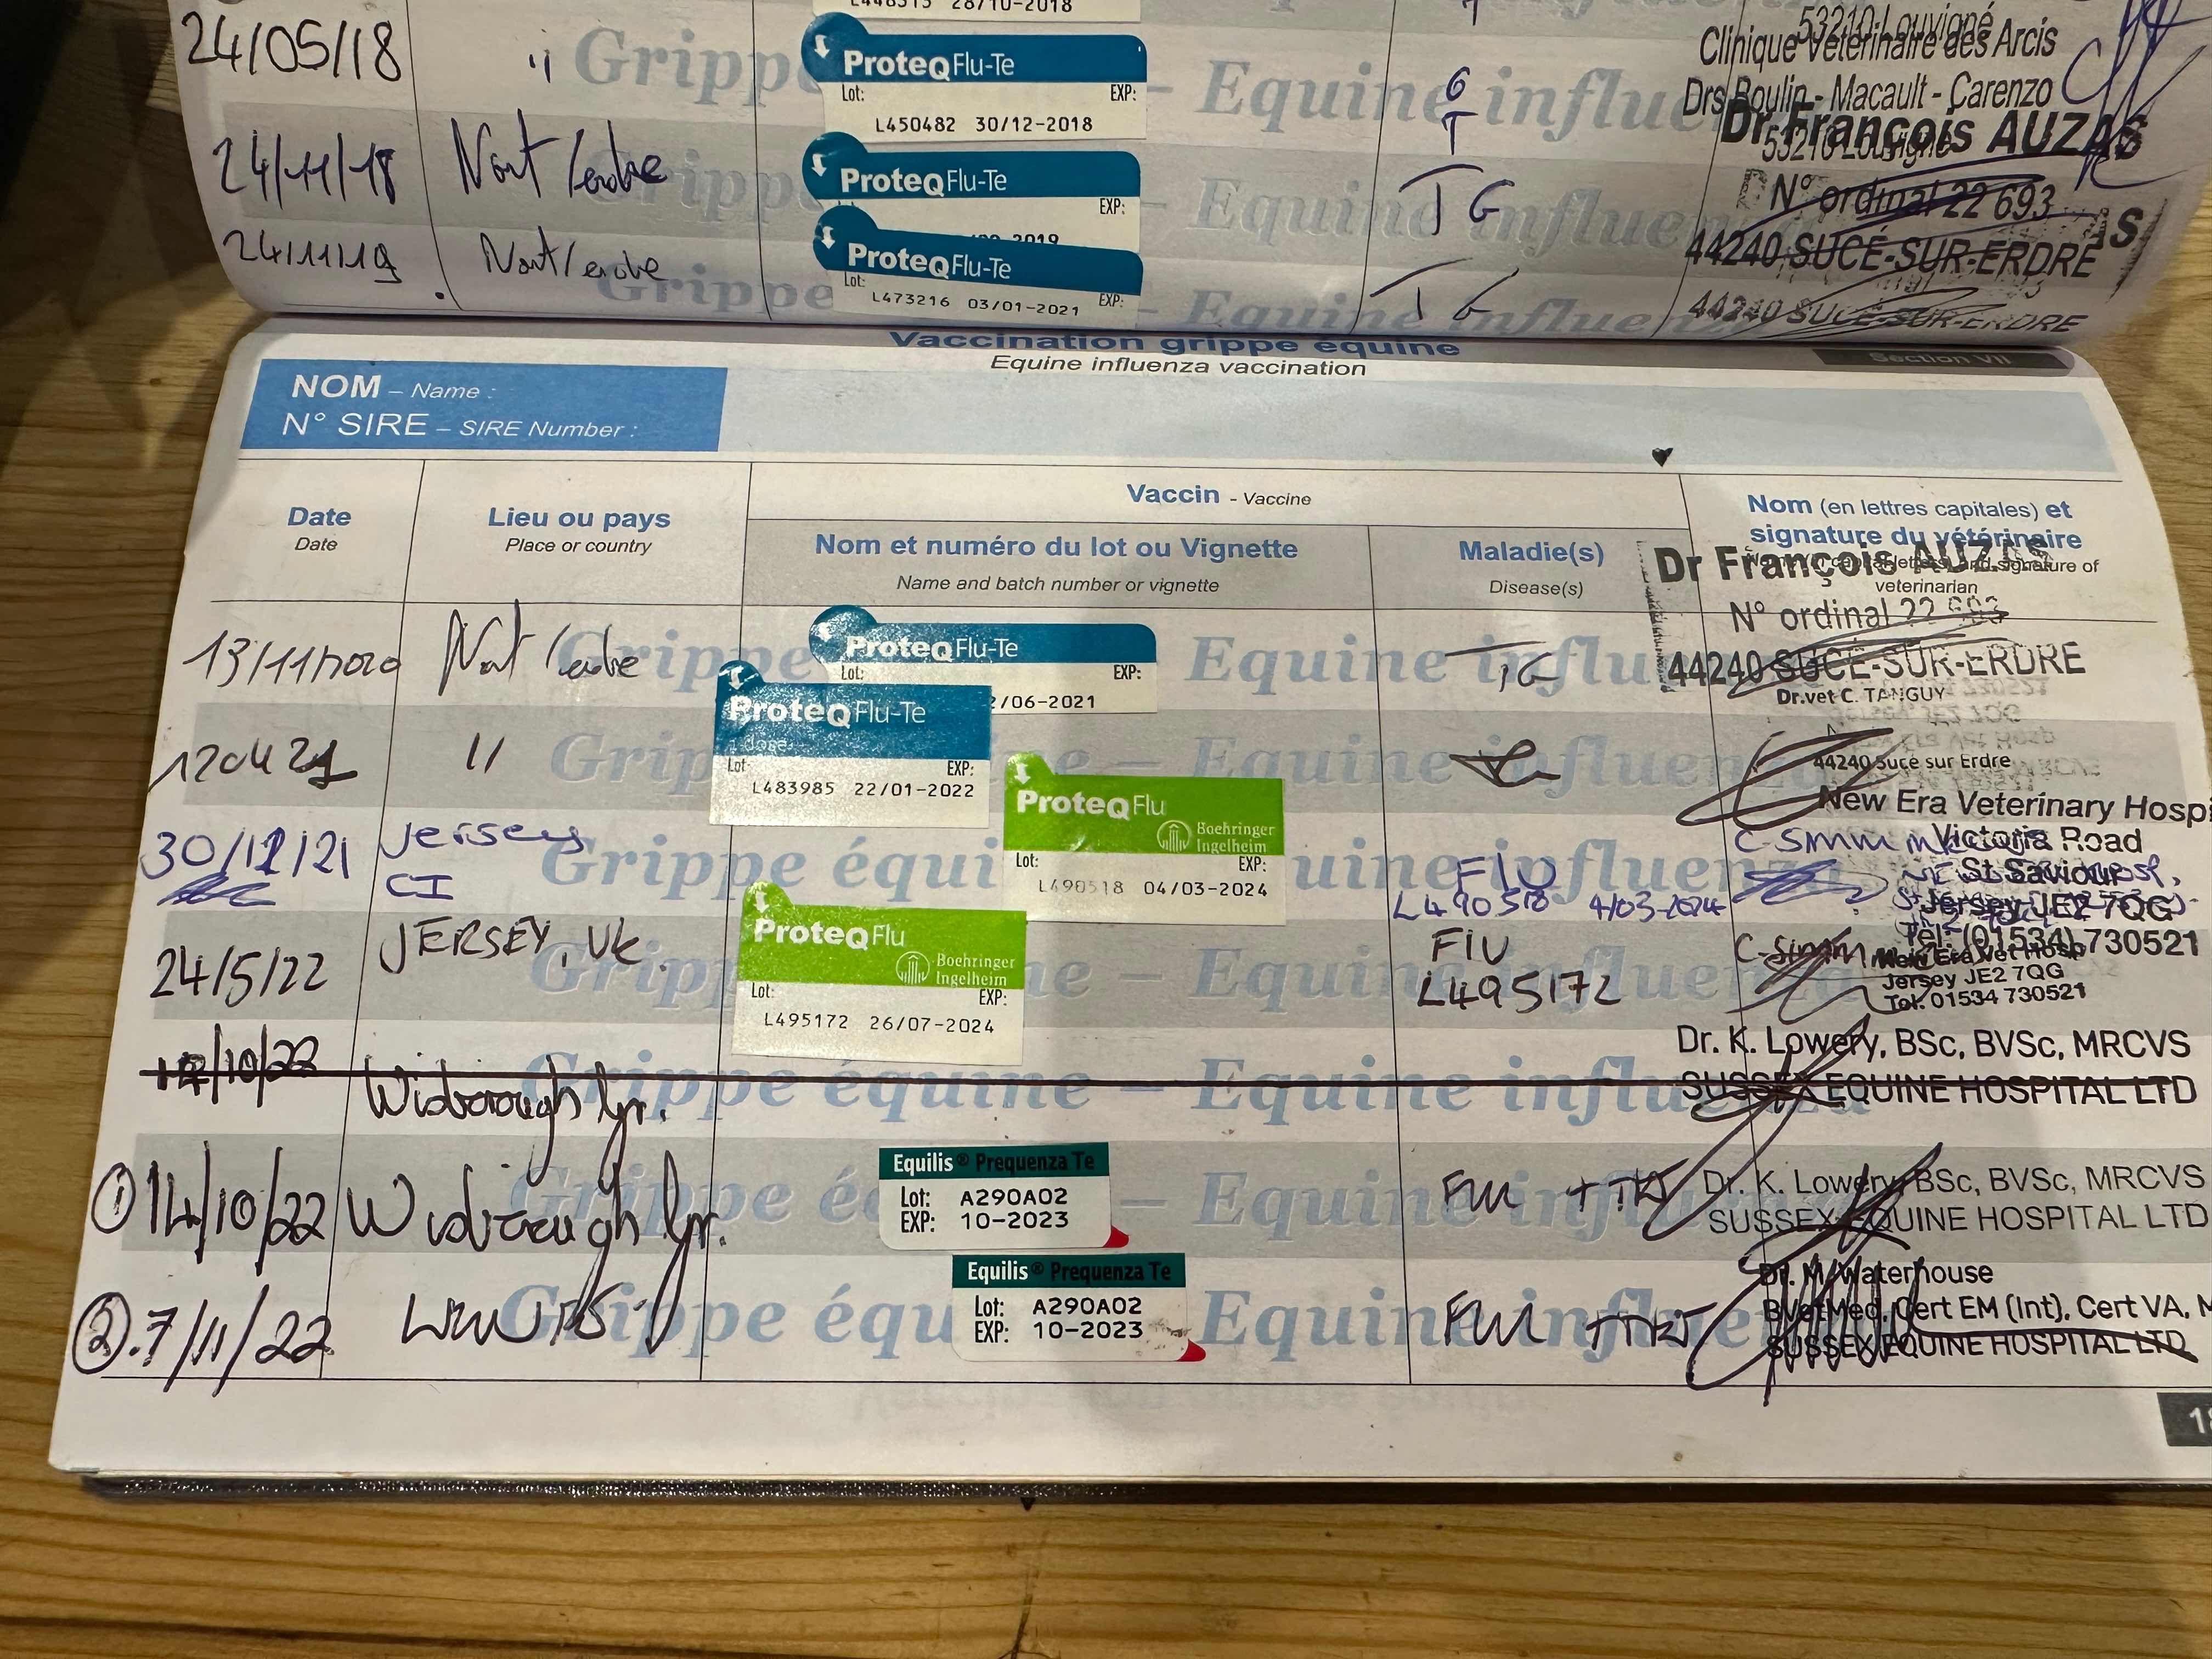 28/10-2018
53210 Louvigné
24/05/18 Grippe ProteqFlu-Te Lot: EXP: L450482 30/12-2018 – Equine influe G T Clinique Vétérinaire des Arcis
Drs Boulin - Macault - Carenzo
53210 Louvigné
24/11/18 Nort/erdre ProteqFlu-Te EXP: Equine influenza TG Dr François AUZAS
N° ordinal 22 693
44240 SUCÉ-SUR-ERDRE
24/11/19 Nort/erdre Grippe ProteqFlu-Te Lot: EXP: L473216 03/01-2021 Equine influe TG
44240 SUCÉ-SUR-ERDRE
Vaccination grippe équine
Equine influenza vaccination
Section VII
NOM – Name :
N° SIRE – SIRE Number :
Date
Date
Lieu ou pays
Place or country
Vaccin - Vaccine
Nom et numéro du lot ou Vignette
Name and batch number or vignette
Maladie(s)
Disease(s)
Nom (en lettres capitales) et
signature du vétérinaire
signature of
veterinarian
13/11/2020 Nort/erdre Grippe ProteqFlu-Te Lot: EXP: /06-2021 Equine influ TG
Dr François AUZAS
N° ordinal 22 693
44240 SUCÉ-SUR-ERDRE
Dr.vet C. TANGUY
44240 Sucé sur Erdre
12 04 21 " ProteqFlu-Te dose Lot EXP: L483985 22/01-2022 – Equine influenza
30/12/21 Jersey
CI
Grippe équi ProteqFlu Boehringer Ingelheim Lot: EXP: L490518 04/03-2024 uine influenza
Flu
L490518 4/03-2024
C Simm
New Era Veterinary Hosp
Victoria Road
St Saviour
Jersey JE2 7QG
Tel: (01534) 730521
24/5/22 JERSEY, UK. ProteqFlu Boehringer Ingelheim Lot: EXP: L495172 26/07-2024 ne – Equine influenza
Flu
L495172
C-Simm
New Era Vet Hosp
Jersey JE2 7QG
Tel: 01534 730521
/10/22 Wisborough Gr. Grippe équine – Equine influenza
Dr. K. Lowery, BSc, BVSc, MRCVS
SUSSEX EQUINE HOSPITAL LTD
① 14/10/22 Wisborough Gr. Grippe é Equilis® Prequenza Te
Lot: A290A02
EXP: 10-2023
– Equine influenza Flu + Tet
Dr. K. Lowery, BSc, BVSc, MRCVS
SUSSEX EQUINE HOSPITAL LTD
② 7/11/22 Grippe équ Equilis® Prequenza Te
Lot: A290A02
EXP: 10-2023
Equine influenza Flu + Tet
Dr. M. Waterhouse
BVetMed, Cert EM (Int), Cert VA, M
SUSSEX EQUINE HOSPITAL LTD